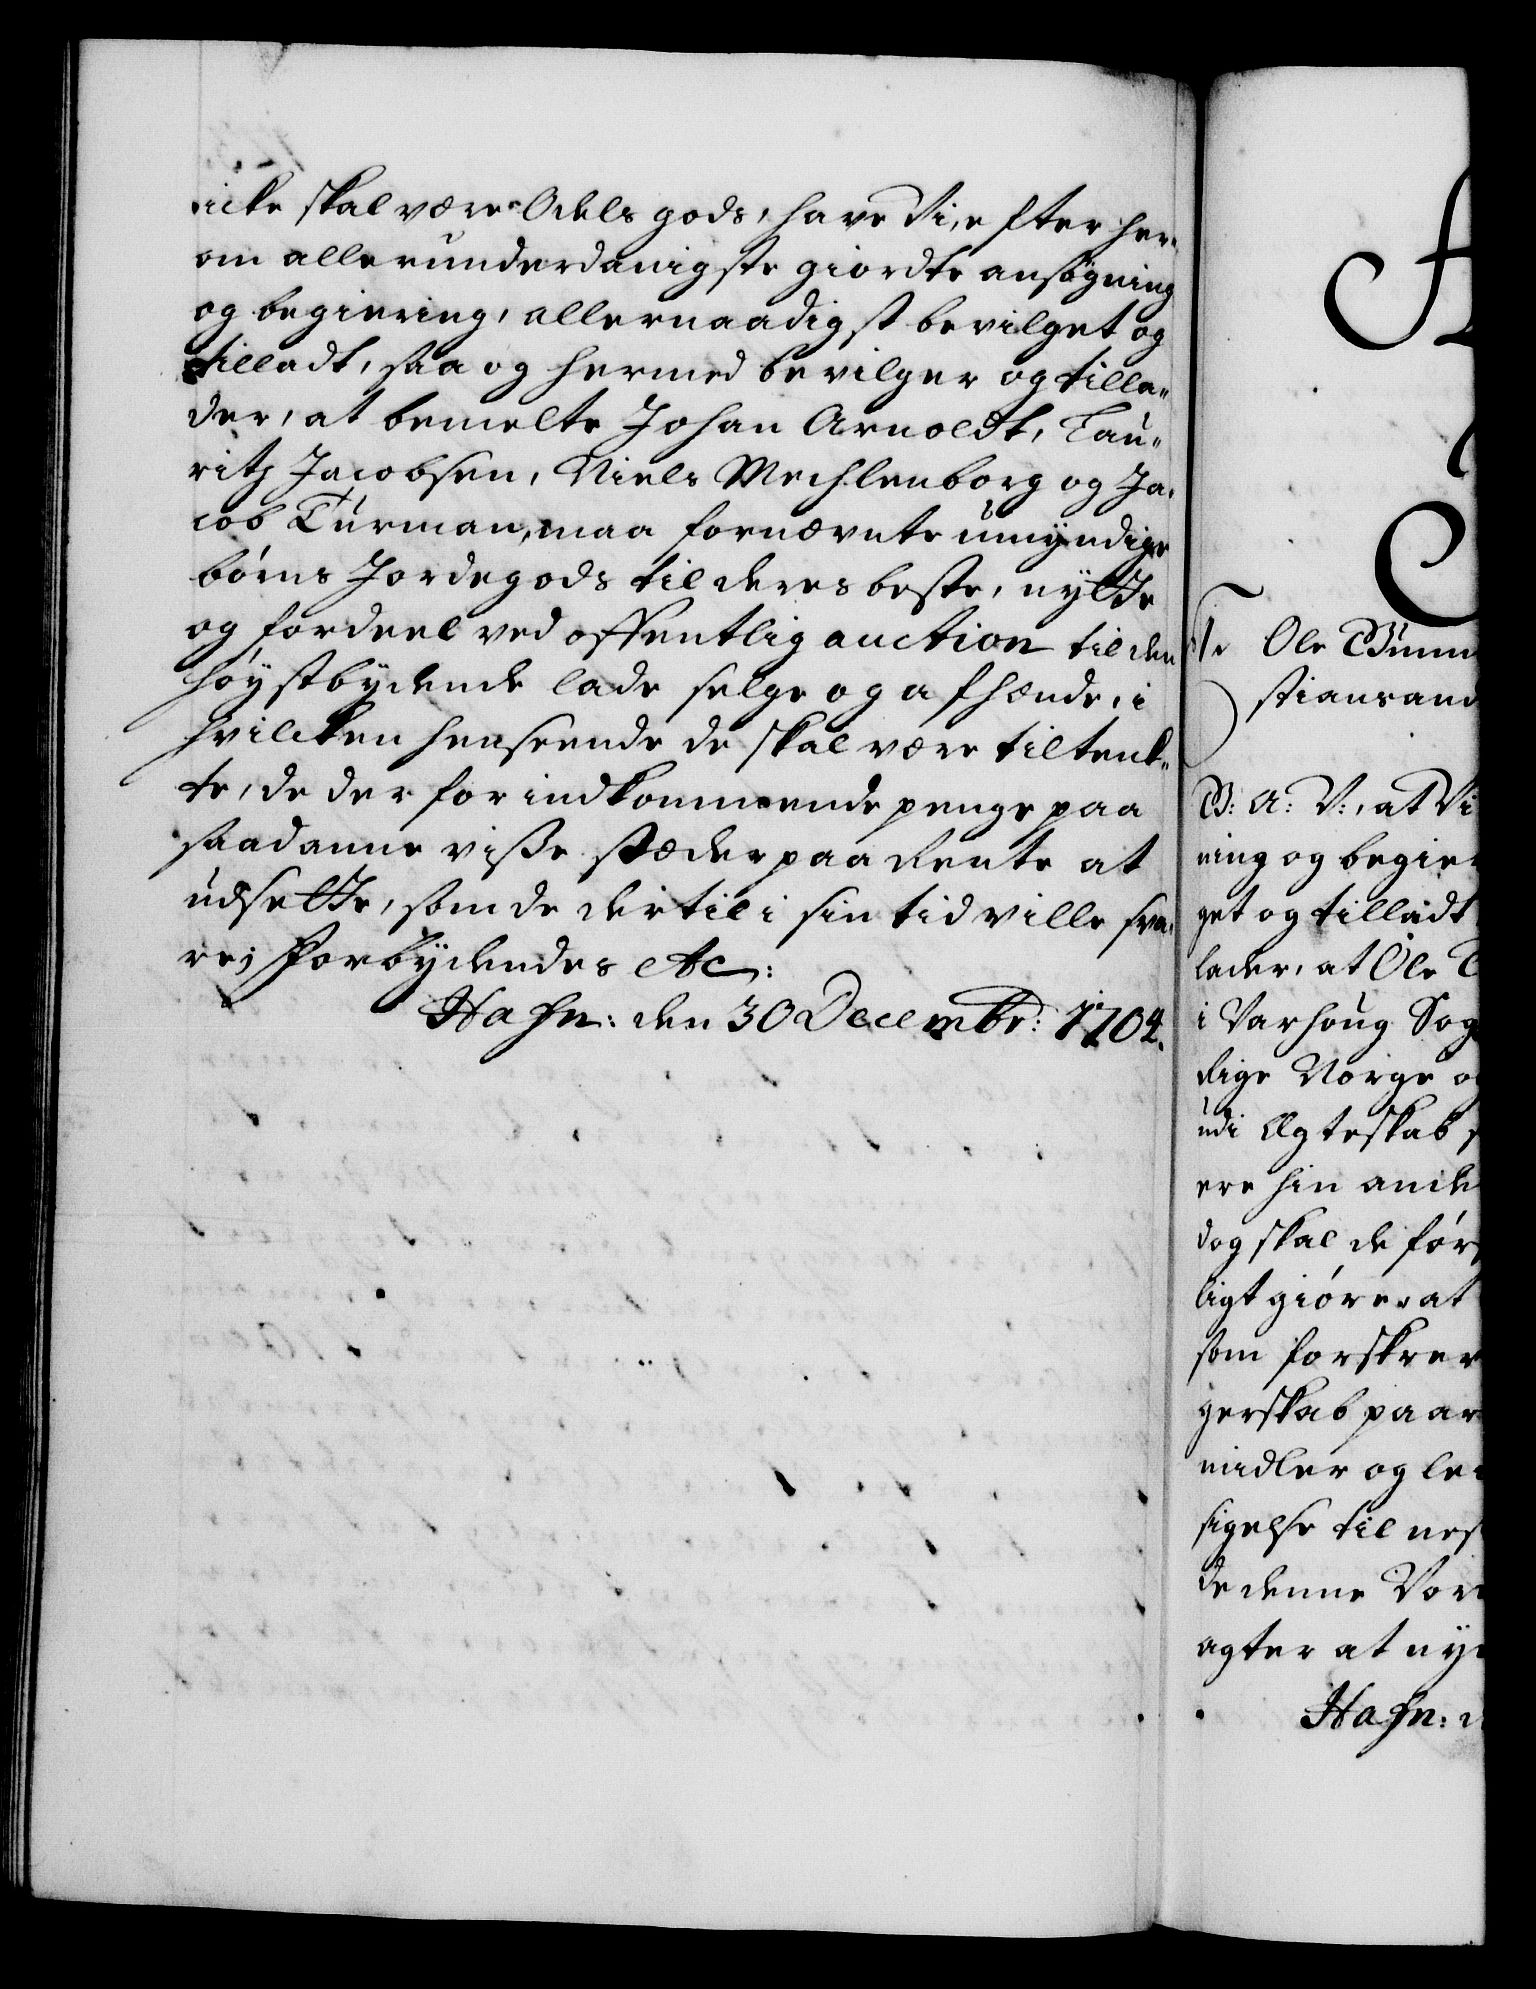 icke skal være Odels gods, have Vi, efter her-
om allerunderdanigste giordte ansøgning
og begiering, allernaadigst bevilget og
tilladt, saa og hermed bevilger og tilla-
der, at bemelte Johan Arnoldt, Lau-
ritz Jacobsen, Niels Mechlenborg og Ja-
cob Turman, maa fornævnte umÿndige
børns Jordegods til deres beste, nÿtte
og fordeel ved offentlig auction til den
høÿstbÿdende lade selge og afhænde, i
hvilcken henseende de skal være tiltenk-
te, de der for indkommende penge paa
saadanne visse stæder paa Rente at
udsette, som de dertil i sin tid ville sva-
re; Forbÿdendes etc:
Hafn: den 30 Decembr: 1704.
Ole
stiansand
B: A: V:, at Vi
ning og begier
get og tilladt
lader, at Ole
i Varhoug Sog
dige Norge o
udi Ægteskab
ere hin anden
dog skal de før
ligt giøre, at
som forskrev
gerskab paar
midler og le
sigelse til nes
de denne Vor
agter at nÿ
Hafn: d